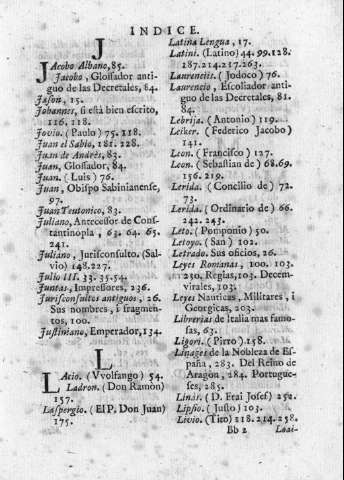 INDICE.
J
Jacobo Albano, 85.
Jacobo, Glosador anti-
guo de las Decretales, 84.
Jason, 15.
Johannes, si està bien escrito,
116. 118.
Jovio. (Paulo) 75. 118.
Juan el Sabio, 181. 228.
Juan de Andrès, 83.
Juan, Glossador, 84.
Juan. (Luis) 76.
Juan, Obispo Sabinianense,
97.
Juan Teutonico, 83.
Juliano, Antecessor de Cons-
tantinopla, 63. 64. 65.
241.
Juliano, Jurisconsulto. (Sal-
vio) 148. 227.
Julio III. 33. 35. 54.
Juntas, Impressores, 236.
Jurisconsultos antiguos, 26.
Sus nombres, i fragmen-
tos, 100.
Justiniano, Emperador, 134.
L
Lacio. (Vvolfango) 54.
Ladron. (Don Ramòn)
157.
Laspergio. (El P. Don Juan)
175.
Latina Lengua, 17.
Latini. (Latino) 44. 99. 128.
187. 214. 217. 263.
Laurenciis. (Jodoco) 76.
Laurencio, Escoliador anti-
guo de las Decretales, 81.
84.
Lebrija. (Antonio) 119.
Leiker. (Federico Jacobo)
141.
Leon. (Francisco) 127.
Leon. (Sebastian de) 68. 69.
156. 219.
Lerida. (Concilio de) 72.
73.
Lerida. (Ordinario de) 66.
242. 243.
Leto. (Pomponio) 50.
Letoyo. (San) 102.
Letrado. Sus oficios, 26.
Leyes Romanas, 100. 103.
230, Regias, 103. Decem-
virales, 103.
Leyes Nauticas, Militares, i
Georgicas, 203.
Librerias de Italia mas famo-
sas, 63.
Ligori. (Pirro) 158.
Linages de la Nobleza de Es-
paña, 283. Del Reino de
Aragon, 284. Portugue-
ses, 285.
Linàr. (D. Frai Josef) 252.
Lipsio. (Justo) 103.
Livio. (Tito) 118. 214. 258.
Bb 2 Loai-